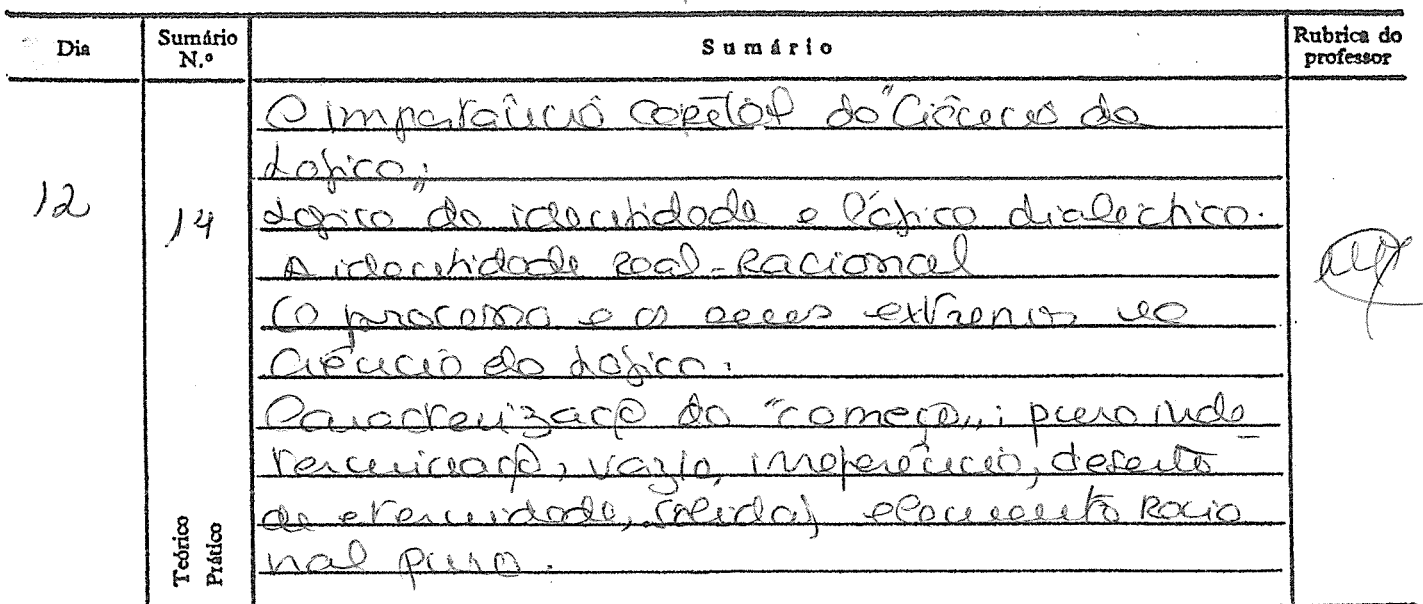 Dia Sumário N.º Sumário Rubrica do professor
12 14
A importância capital da "Ciência da
Lógica".
Lógica da identidade e lógica dialéctica.
A identidade Real-Racional
O processo e os seus extremos na
Ciência da Lógica.
Caracterização do "começo": pura inde
terminação, vazio, indiferença, deserto
de eternidade, elemento Racio
nal puro.
Teórico
Prático